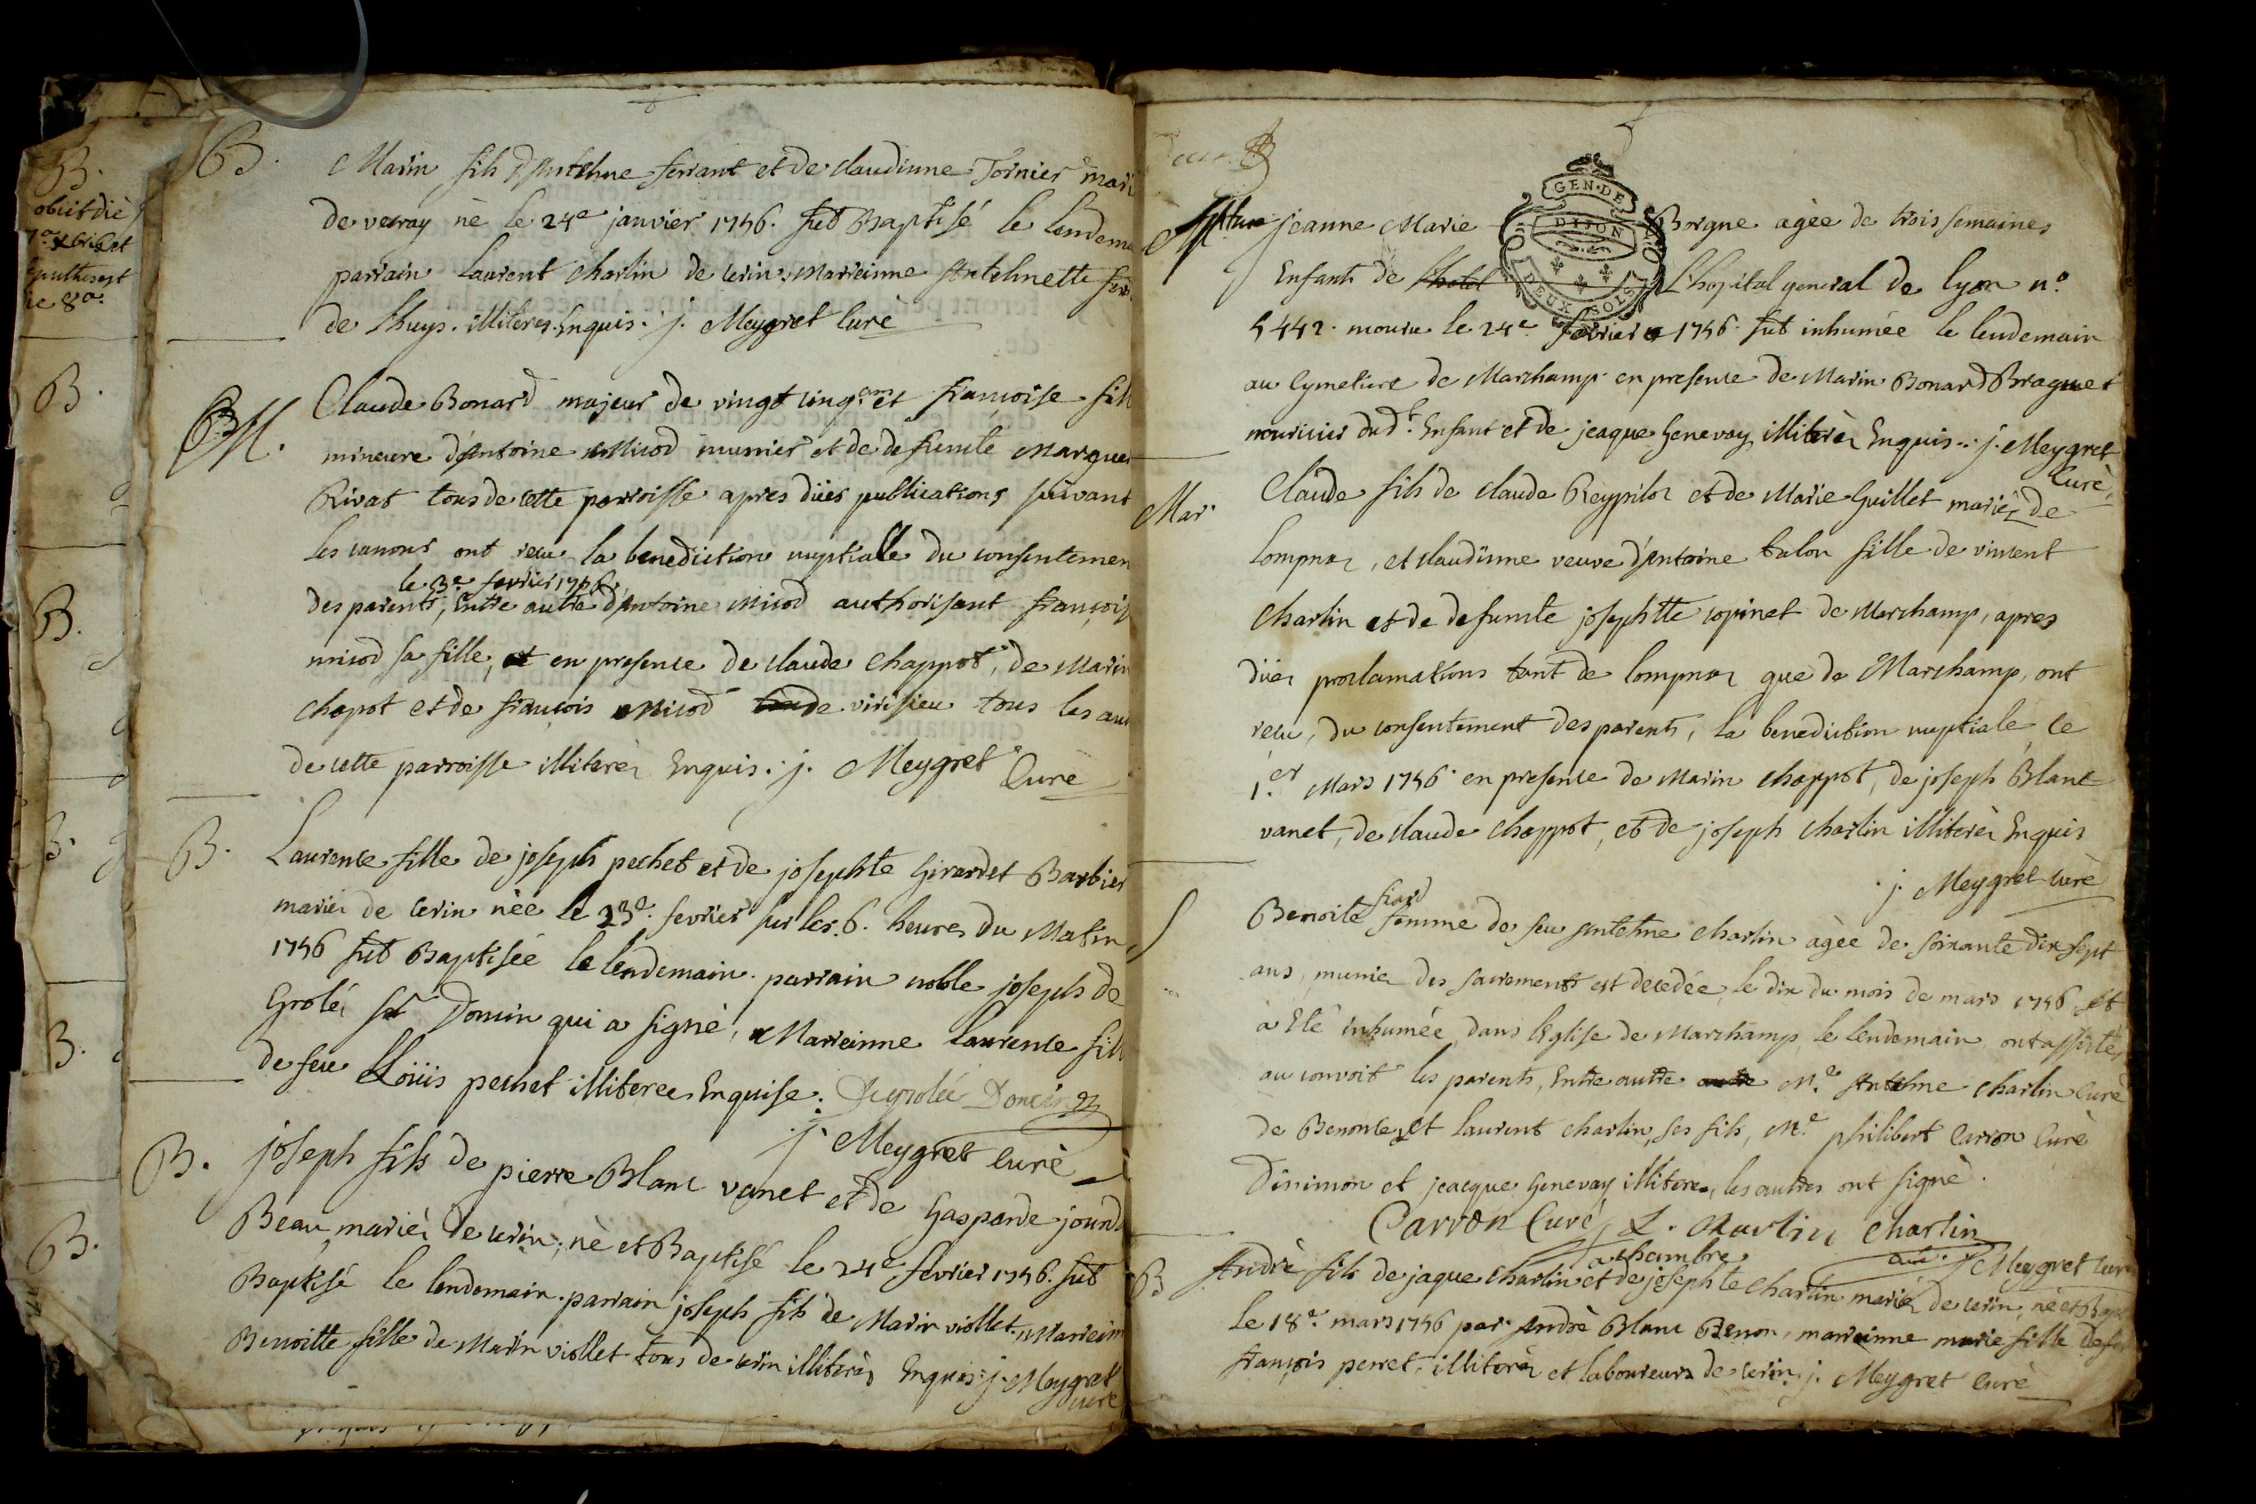 B.
obiit die
B. Marin fils d'Antelme ferrant et de claudinne Tornier mari
de veray né le 24e janvier 1756. fut Baptisé le lendem
parrain Laurent charlin de cerin. Marreinne Antelmette
de Lhuys. illiteres Enquis. j. Meygret Curé
B.
M. Claude Bonard majeur de vingt cinq ans et francoise fill
mineure d'Antoine Micod munier et de defunte Margue
Rivat tous de cette parroisse apres düés publications suivant
les canons ont recu la benediction nuptialle du consentemen
le 3e fevrier 1756
des parents, Entre autre d'Antoine micod authorisant françois
micod sa fille, et en presence de claude chappot, de Marin
chapot et de francois Micod de virisieu tous les au
de cette parroisse illiterés Enquis. j. Meygret Curé
B.
B. Laurence fille de joseph pechet et de josephte Girardet Barbier
mariés de Cerin née le 23e. fevrier sur les 6. heures du Matin
1756 fut Baptisée le lendemain. parrain noble joseph de
Grolée st Doncin qui a signé, Marreinne Laurence fill
de feu Loüis pechet illiteree Enquise. Degrolée Doncin
j. Meygret Curé
B. joseph fils de pierre Blanc vanet et de Gasparde jourd
Beau, mariés de cerin, né et Baptisé le 24e fevrier 1756. fut
Baptisé le lendemain. parrain joseph fils de Marin viollet. Marrein
Benoitte fille de Marin viollet tous de cerin illiterés Enquis j. Meygret
Curé
GEN. DE
DIJON
DEUX SOLS
jeanne Marie Borgne agée de trois semaines
Enfants de L'hopital general de Lyon no.
5442. mourue le 24e fevrier 1756. fut inhumée le lendemain
au Cymetiere de Marchamp en presence de Marin Bonard Braguet
nouricier dud. Enfant et de jeaque Genevay illiterés Enquis. j. Meygret
Curé
Mar. Claude fils de claude Reypilos et de Marie Guillet mariés de
Lompnas, et claudinne veuve d'Antoine talon fille de vincent
Charlin et de defunte josephtte copinet de Marchamp, apres
düés proclamations tant de lompnas que de Marchamp, ont
recu, du consentement des parents, la benediction nuptiale, le
1.er Mars 1756. en presence de Marin Chappot, de joseph Blanc
vanet, de claude Chappot, et de joseph Charlin illiterés Enquis
j. Meygret Curé
S Benoite fiard femme de feu Antelme charlin agée de soixante dix sept
ans, munie des sacrements est decedée, le dix du mois de mars 1756 et
a Eté inhumée, dans l'Eglise de Marchamp, le lendemain, ont assistés
au convoit les parents, Entre autre Me. Antelme Charlin Curé
de Benonce, et Laurent charlin, ses fils, Me. philibert Carron Curé
Dinimon et jeacque Genevay illitere, les autres ont signé.
Carron Curé L. Charlin Charlin
j. Meygret Curé
B André fils de jaque Charlin achambre et de josephte Charlin mariés de cerin, né et Bapt
Le 18e. mars 1756 par. André Blanc Benon, marreinne marie fille de
françois perret, illiterés et laboureurs de cerin. j. Meygret Curé